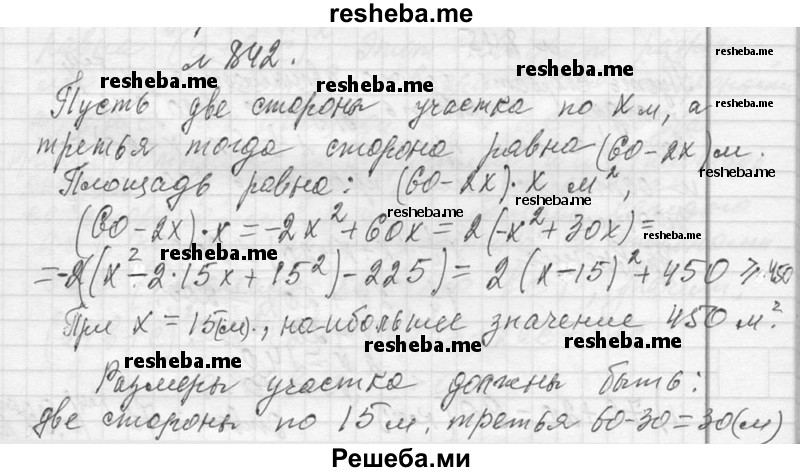 resheba.me
№ 842.
resheba.me
resheba.me resheba.me
resheba.me
Пусть две стороны участка по x м, а
resheba.me
третья тогда сторона равна (60-2x) м.
resheba.me
Площадь равна: (60-2x)·x м²,
resheba.me
(60-2x)·x = -2x² + 60x = 2(-x² + 30x) =
resheba.me
resheba.me
= -2((x² - 2·15x + 15²) - 225) = 2(x-15)² + 450 ≥ 450
resheba.me
При x = 15(м)., наибольшее значение 450 м².
resheba.me resheba.me resheba.me
Размеры участка должны быть:
две стороны по 15 м, третья 60-30=30(м)
Решеба.ми